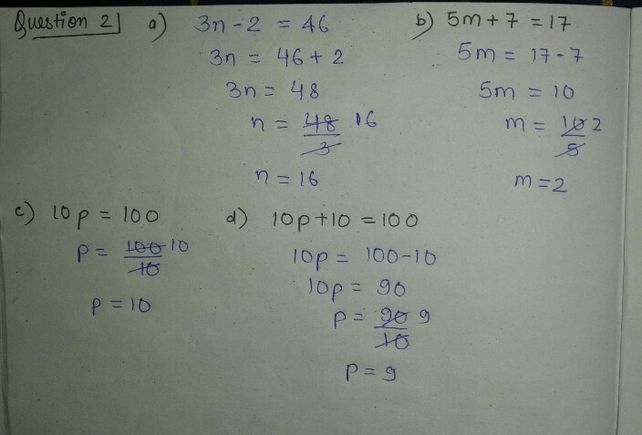 Question 2] a) 3n - 2 = 46
3n = 46 + 2
3n = 48
n = 48/3 16
n = 16
b) 5m + 7 = 17
5m = 17 - 7
5m = 10
m = 10/5 2
m = 2
c) 10p = 100
p = 100/10 10
p = 10
d) 10p + 10 = 100
10p = 100 - 10
10p = 90
p = 90/10 9
p = 9